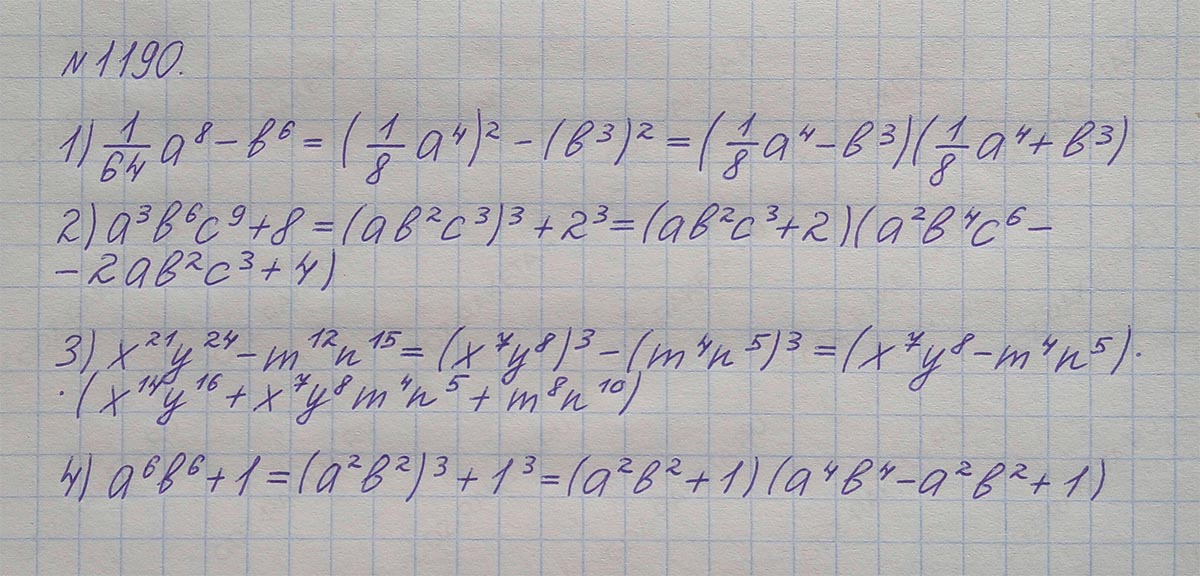 №1190.
1) 1/64 a⁸ - b⁶ = (1/8 a⁴)² - (b³)² = (1/8 a⁴ - b³)(1/8 a⁴ + b³)
2) a³b⁶c⁹ + 8 = (ab²c³)³ + 2³ = (ab²c³ + 2)(a²b⁴c⁶ -
- 2ab²c³ + 4)
3) x²¹y²⁴ - m¹²n¹⁵ = (x⁷y⁸)³ - (m⁴n⁵)³ = (x⁷y⁸ - m⁴n⁵)·
·(x¹⁴y¹⁶ + x⁷y⁸m⁴n⁵ + m⁸n¹⁰)
4) a⁶b⁶ + 1 = (a²b²)³ + 1³ = (a²b² + 1)(a⁴b⁴ - a²b² + 1)